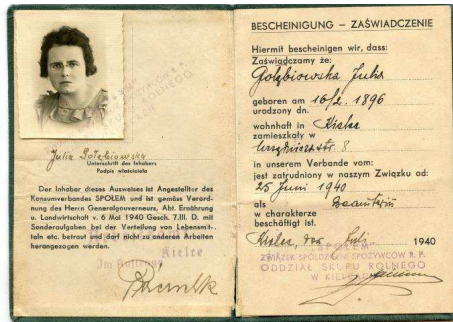 Julia Gołębiowska
Unterschrift des Inhabers
Podpis właściciela
Der Inhaber dieses Ausweises ist Angestellter des
Konsumverbandes SPOLEM und ist gemäss Verord-
dung des Herrn Generalgouverneurs, Abt. Ernährung
u. Landwirtschaft v. 6 Mai 1940 Gesch. 7.III. D. mit
Sonderaufgaben bei der Verteilung von Lebensmit-
teln etc. betraut und darf nicht zu anderen Arbeiten
herangezogen werden.
Kielce
Im Auftrage
BESCHEINIGUNG – ZAŚWIADCZENIE
Hiermit bescheinigen wir, dass:
Zaświadczamy że:
Gołębiowska Julia
geboren am 16/2. 1896
urodzony dn.
wohnhaft in Kielce
zamieszkały w
8
in unserem Verbande vom:
jest zatrudniony w naszym Związku od:
25 Juni 1940
als Beamterin
w charakterze
beschäftigt ist.
Kielce, den Juli 1940
"SPOŁEM"
ZWIĄZEK SPÓŁDZIELNI SPOŻYWCÓW R. P.
ODDZIAŁ SKUPU ROLNEGO
W KIELCACH